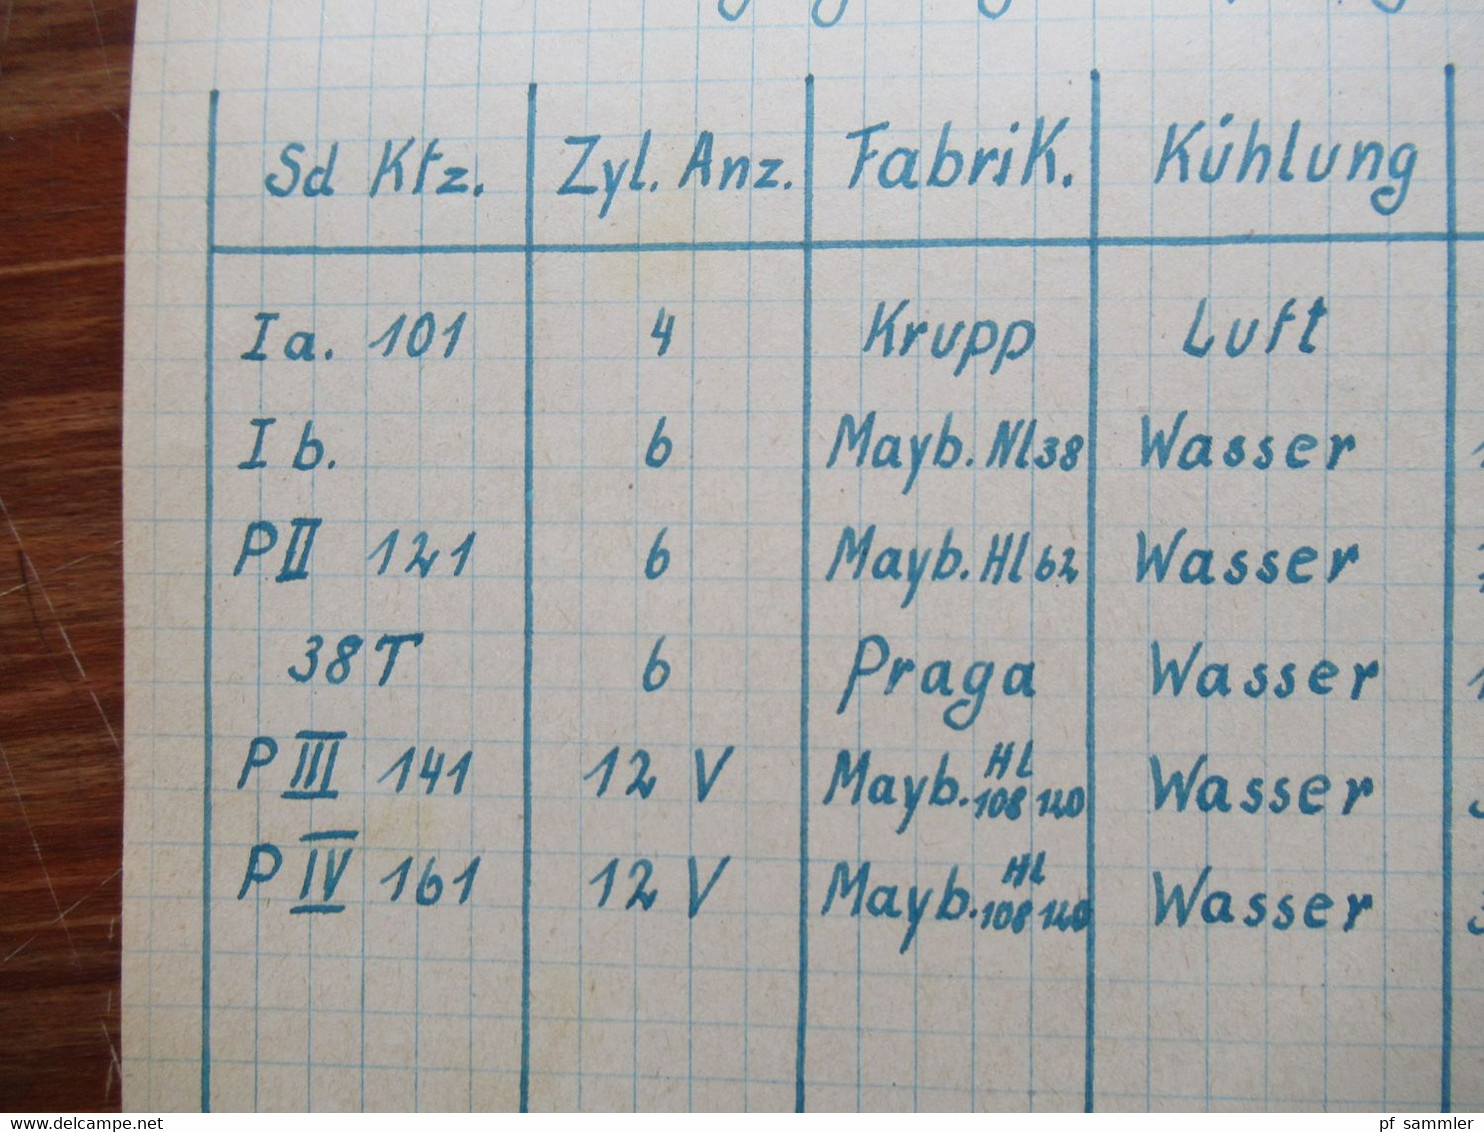 Sd Kfz. Zyl. Anz. Fabrik. Kühlung
Ia. 101 4 Krupp Luft
Ib. 6 Mayb. Nl 38 Wasser
P II 121 6 Mayb. Hl 62 Wasser
38 T 6 Praga Wasser
P III 141 12 V Mayb. Hl 108 120 Wasser
P IV 161 12 V Mayb. Hl 108 120 Wasser
www.delcampe.net
pf_sammler